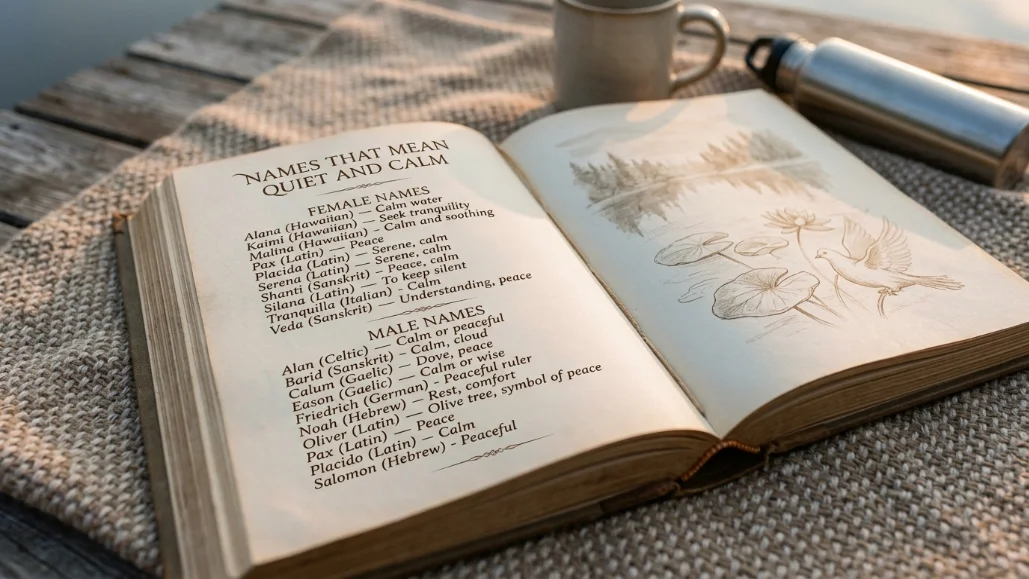 NAMES THAT MEAN
QUIET AND CALM
FEMALE NAMES
Alana (Hawaiian) — Calm water
Kaimi (Hawaiian) — Seek tranquility
Malina (Hawaiian) - Calm and soothing
Pax (Latin) — Peace
Placida (Latin) — Serene, calm
Serena (Latin) — Serene, calm
Shanti (Sanskrit) — Peace, calm
Silana (Latin) — To keep silent
Tranquilla (Italian) - Calm
Veda (Sanskrit) — Understanding, peace
MALE NAMES
Alan (Celtic) — Calm or peaceful
Barid (Sanskrit) - Calm, cloud
Calum (Gaelic) — Dove, peace
Eason (Gaelic) — Calm or wise
Friedrich (German) - Peaceful ruler
Noah (Hebrew) — Rest, comfort
Oliver (Latin) — Olive tree, symbol of peace
Pax (Latin) — Peace
Placido (Latin) — Calm
Salomon (Hebrew) - Peaceful